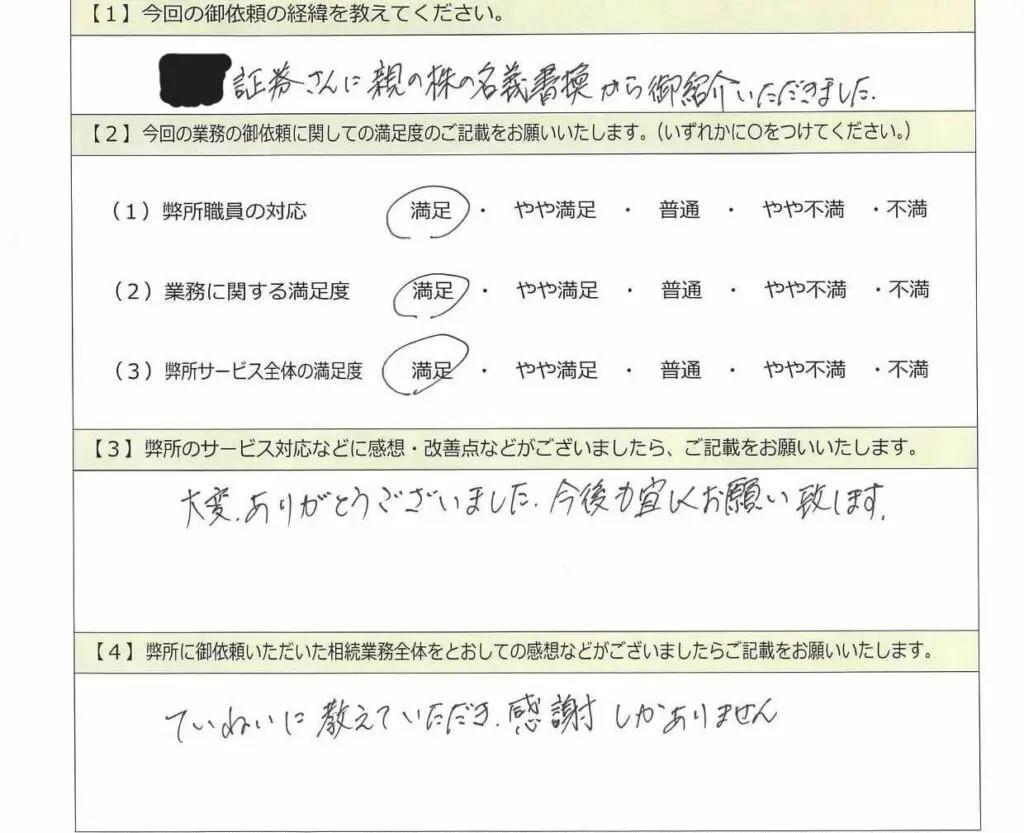 【1】今回の御依頼の経緯を教えてください。
証券さんに親の株の名義書換から御紹介いただきました.
【2】今回の業務の御依頼に関しての満足度のご記載をお願いいたします。(いずれかに〇をつけてください。)
(1)弊所職員の対応 満足 ・ やや満足 ・ 普通 ・ やや不満 ・不満
(2)業務に関する満足度 満足 ・ やや満足 ・ 普通 ・ やや不満 ・不満
(3)弊所サービス全体の満足度 満足 ・ やや満足 ・ 普通 ・ やや不満 ・不満
【3】弊所のサービス対応などに感想・改善点などがございましたら、ご記載をお願いいたします。
大変.ありがとうございました.今後も宜しくお願い致します.
【4】弊所に御依頼いただいた相続業務全体をとおしての感想などがございましたらご記載をお願いいたします。
ていねいに教えていただき.感謝しかありません